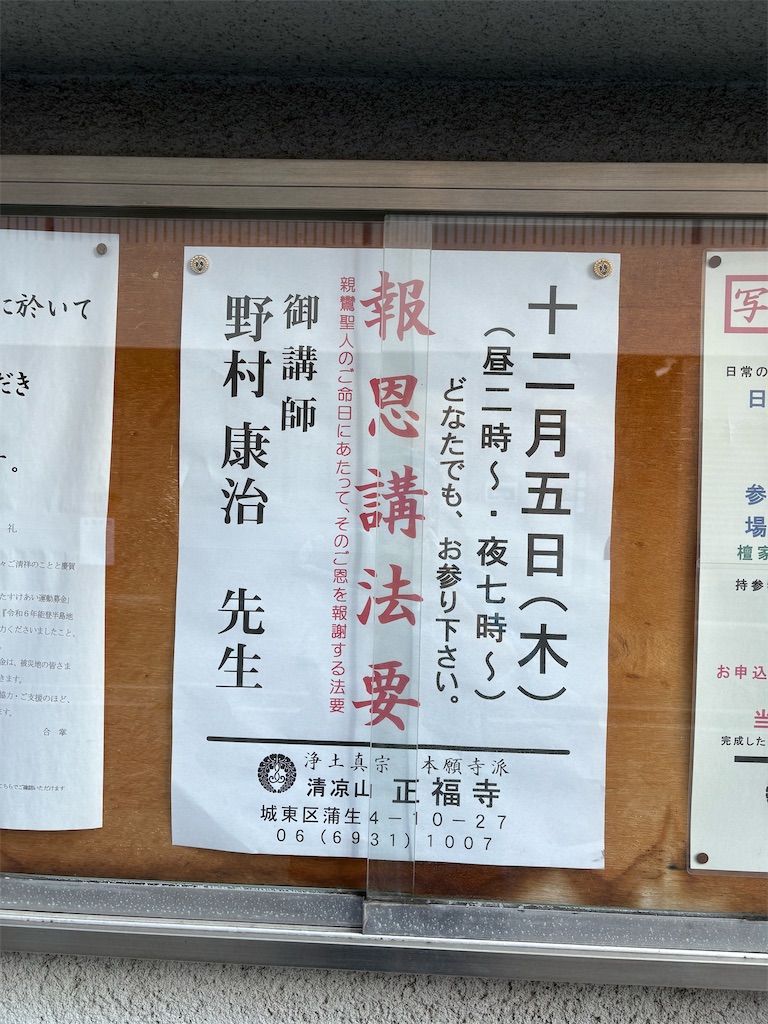 十二月五日(木)
(昼二時〜・夜七時〜)
どなたでも、お参り下さい。
報恩講法要
親鸞聖人のご命日にあたって、そのご恩を報謝する法要
御講師
野村康治 先生
浄土真宗 本願寺派
清凉山 正福寺
城東区蒲生4-10-27
06(6931)1007
に於いて
だき
す。
礼
々ご清祥のことと慶賀
たすけあい運動募金」
『令和6年能登半島地
力くださいましたこと、
金は、被災地の皆さま
きます。
協力・ご支援のほど、
ます。
合掌
こちらでご確認いただけます
写
日常の
日
参
場
檀家
持参
お申込
当
完成した